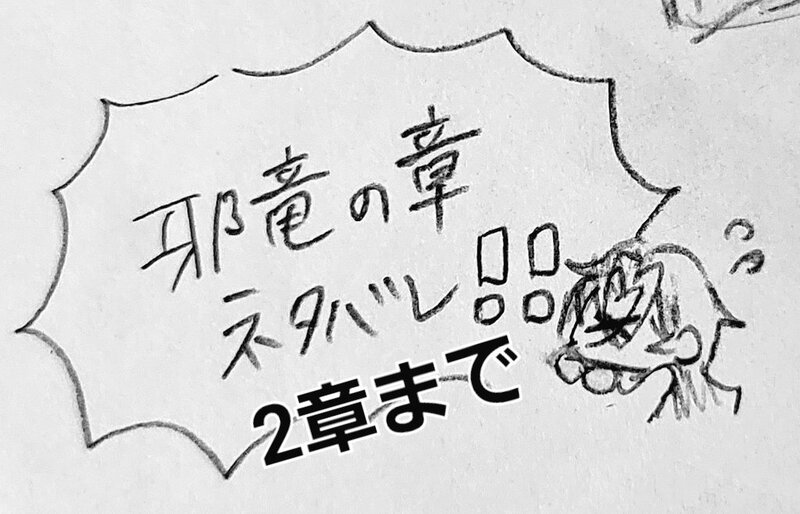 邪竜の章
ネタバレ!!
2章まで